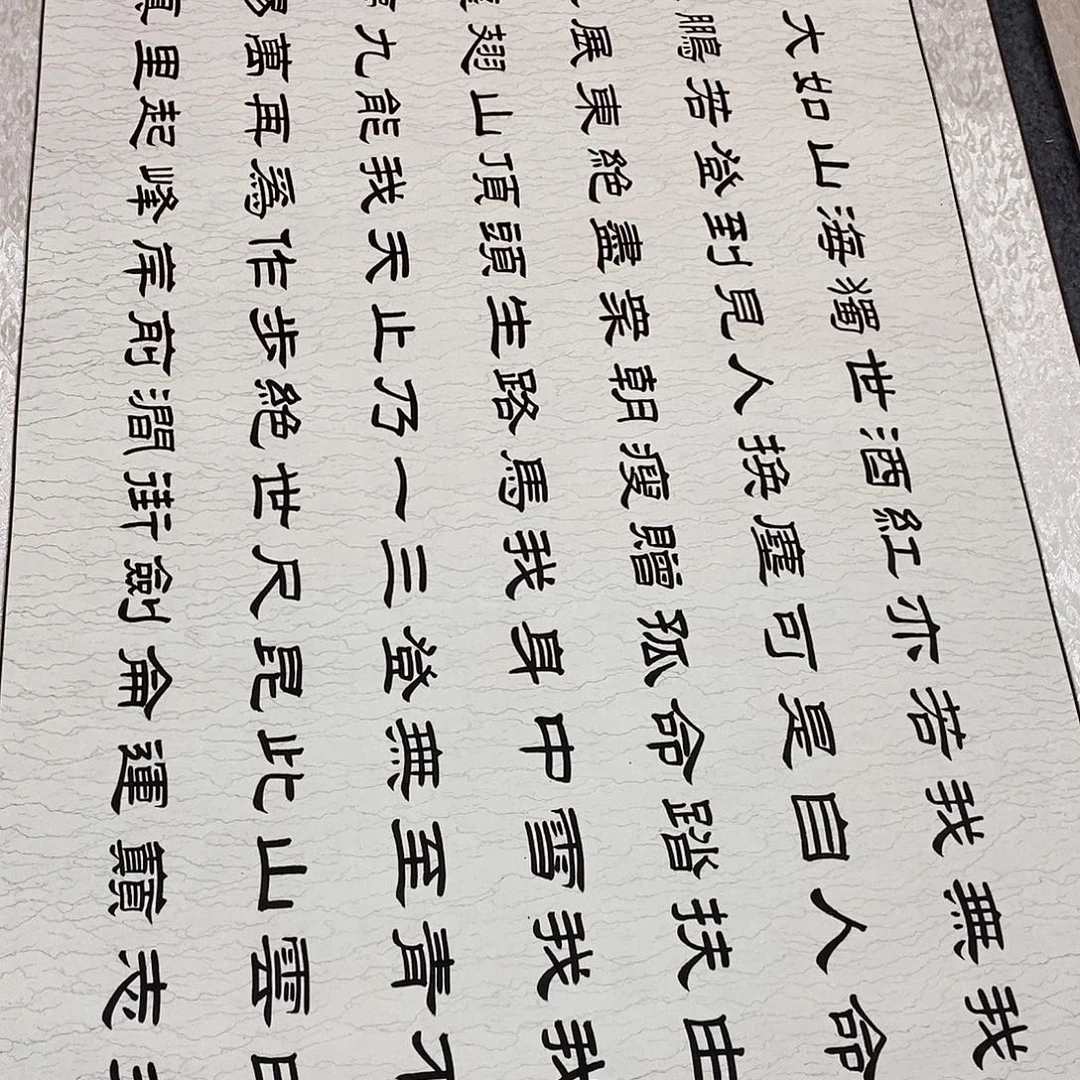 大如山海獨世酒紅亦若我無我
鵬若登到見人換塵可是自人命
展東絕盡眾朝瘦贈孤命踏扶由
翅山頂頭生路馬我身中雪我我
九能我天止乃一三登無至青不
萬再為作步絕世尺昆此山雲
里起峰岸前澗街劍侖運巔志